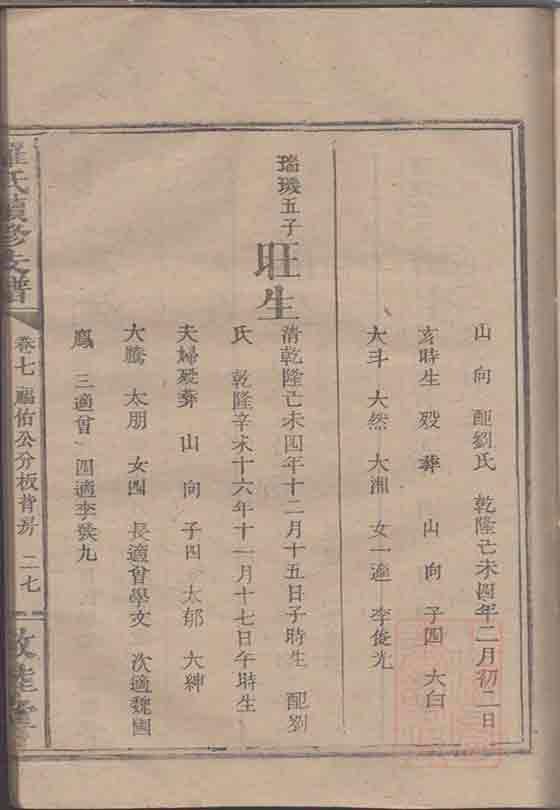 山 向 配劉氏 乾隆己未四年二月初二日
亥時生 歿 葬 山 向 子四 大白
大斗 大然 大淵 女一適 李俊光
瑞璣五子
旺生
清乾隆己未四年十二月十五日子時生 配劉
氏 乾隆辛未十六年十一月十七日午時生
夫婦歿葬 山 向 子四 大郁 大紳
大騰 大朋 女四 長適曾學文 次適魏國
鳳 三適曾 四適李
羅氏續修支譜
卷七 福佑公分板背房 二七
敦睦堂